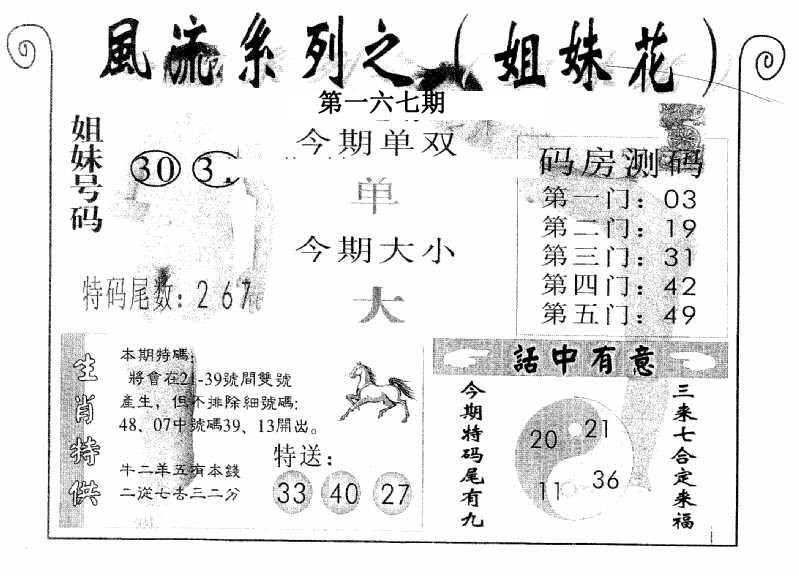 風流系列之（姐妹花）
第一六七期
姐妹号码
30 3
特码尾数：267
今期单双
单
今期大小
大
码房测码
第一门：03
第二门：19
第三门：31
第四门：42
第五门：49
生肖特供
本期特碼：
將會在21-39號間雙號
產生，但不排除細號碼：
48、07中號碼39、13開出。
牛二羊五有本錢
二從七查三二分
特送：
33 40 27
話中有意
今期特码尾有九
20 21
11 36
三来七合定来福